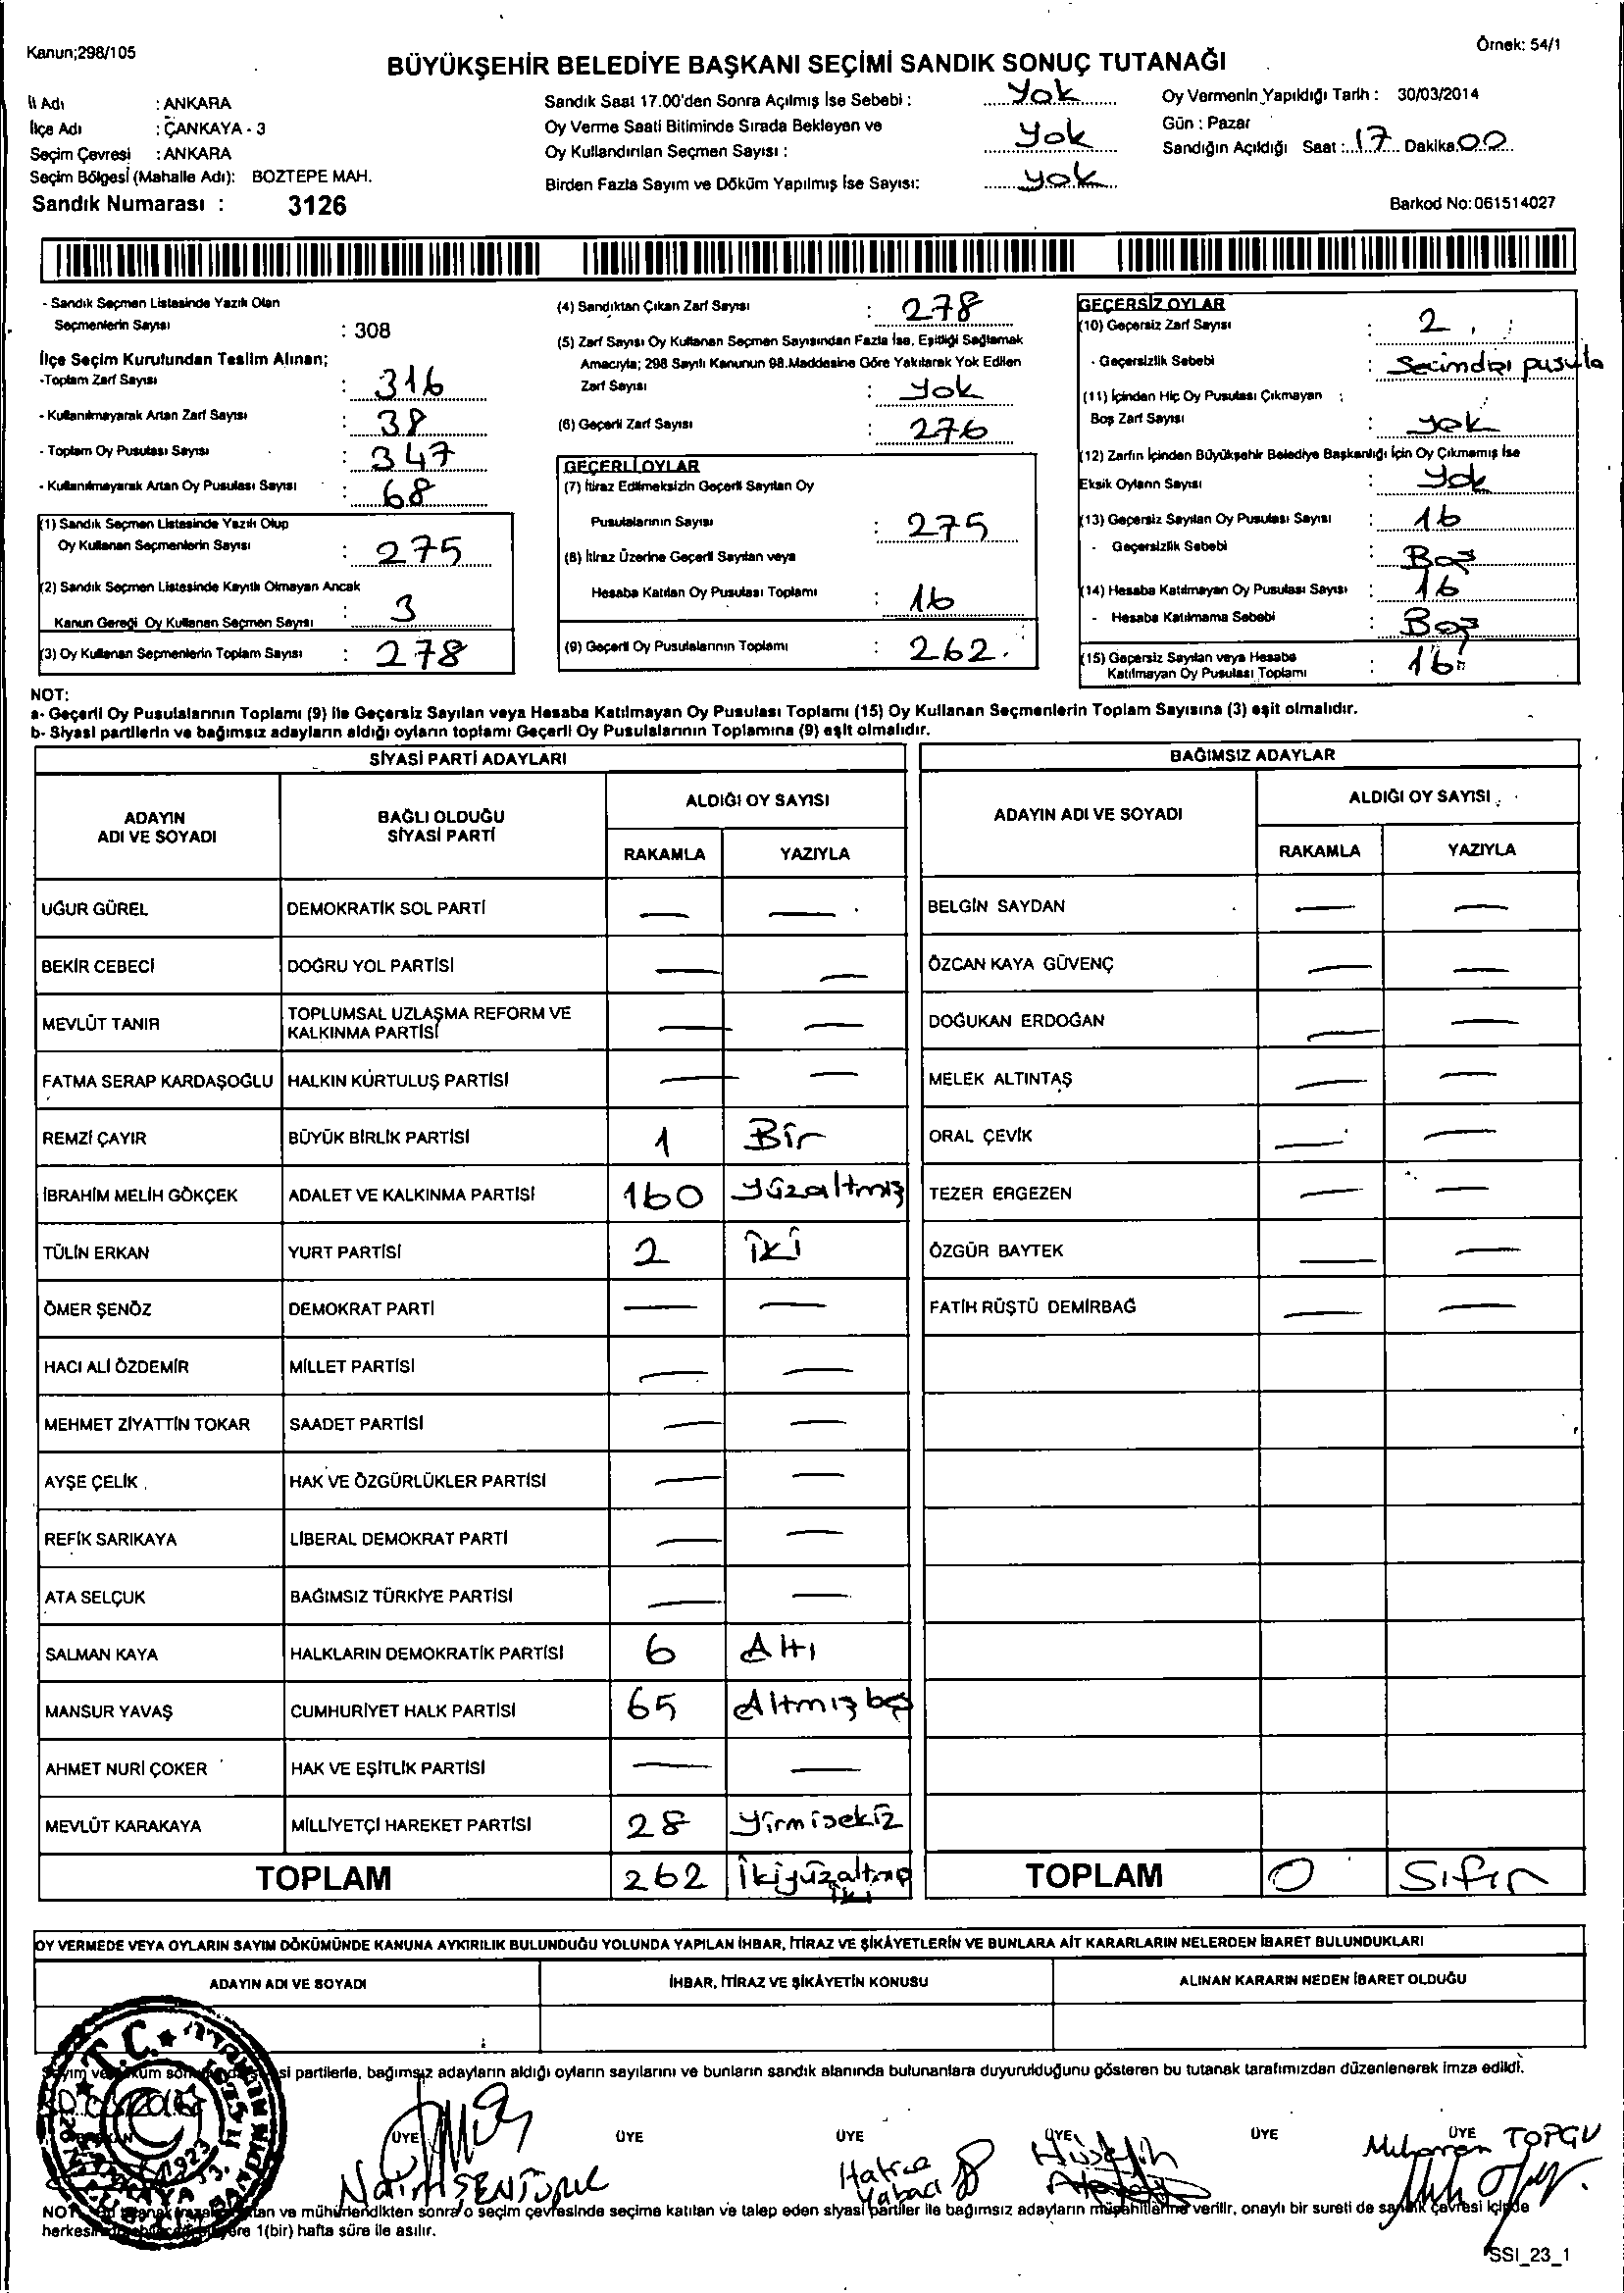 Kanun;298/105
Örnek: 54/1
BÜYÜKŞEHİR BELEDİYE BAŞKANI SEÇİMİ SANDIK SONUÇ TUTANAĞI
İl Adı : ANKARA
İlçe Adı : ÇANKAYA - 3
Seçim Çevresi : ANKARA
Seçim Bölgesi (Mahalle Adı): BOZTEPE MAH.
Sandık Numarası : 3126
Sandık Saat 17.00'den Sonra Açılmış İse Sebebi : Yok
Oy Verme Saati Bitiminde Sırada Bekleyen ve
Oy Kullandırılan Seçmen Sayısı : Yok
Birden Fazla Sayım ve Döküm Yapılmış İse Sayısı: Yok
Oy Vermenin Yapıldığı Tarih : 30/03/2014
Gün : Pazar
Sandığın Açıldığı Saat : 17 Dakika 00
Barkod No:061514027
- Sandık Seçmen Listesinde Yazılı Olan
Seçmenlerin Sayısı : 308
İlçe Seçim Kurulundan Teslim Alınan;
-Toplam Zarf Sayısı : 316
- Kullanılmayarak Artan Zarf Sayısı : 38
- Toplam Oy Pusulası Sayısı : 347
- Kullanılmayarak Artan Oy Pusulası Sayısı : 68
(1) Sandık Seçmen Listesinde Yazılı Olup
Oy Kullanan Seçmenlerin Sayısı : 275
(2) Sandık Seçmen Listesinde Kayıtlı Olmayan Ancak
Kanun Gereği Oy Kullanan Seçmen Sayısı : 3
(3) Oy Kullanan Seçmenlerin Toplam Sayısı : 278
(4) Sandıktan Çıkan Zarf Sayısı : 278
(5) Zarf Sayısı Oy Kullanan Seçmen Sayısından Fazla İse, Eşitliği Sağlamak
Amacıyla; 298 Sayılı Kanunun 98.Maddesine Göre Yakılarak Yok Edilen
Zarf Sayısı : Yok
(6) Geçerli Zarf Sayısı : 276
GEÇERLİ OYLAR
(7) İtiraz Edilmeksizin Geçerli Sayılan Oy
Pusulalarının Sayısı : 275
(8) İtiraz Üzerine Geçerli Sayılan veya
Hesaba Katılan Oy Pusulası Toplamı : 16
(9) Geçerli Oy Pusulalarının Toplamı : 262
GEÇERSİZ OYLAR
(10) Geçersiz Zarf Sayısı : 2
- Geçersizlik Sebebi : Secimdışı pusula
(11) İçinden Hiç Oy Pusulası Çıkmayan
Boş Zarf Sayısı : yok
(12) Zarfın İçinden Büyükşehir Belediye Başkanlığı İçin Oy Çıkmamış İse
Eksik Oyların Sayısı : Yok
(13) Geçersiz Sayılan Oy Pusulası Sayısı : 16
- Geçersizlik Sebebi : Boş
(14) Hesaba Katılmayan Oy Pusulası Sayısı : 16
- Hesaba Katılmama Sebebi : Boş
(15) Geçersiz Sayılan veya Hesaba
Katılmayan Oy Pusulası Toplamı : 16
NOT:
a- Geçerli Oy Pusulalarının Toplamı (9) ile Geçersiz Sayılan veya Hesaba Katılmayan Oy Pusulası Toplamı (15) Oy Kullanan Seçmenlerin Toplam Sayısına (3) eşit olmalıdır.
b- Siyasi partilerin ve bağımsız adayların aldığı oyların toplamı Geçerli Oy Pusulalarının Toplamına (9) eşit olmalıdır.
SİYASİ PARTİ ADAYLARI
BAĞIMSIZ ADAYLAR
ADAYIN ADI VE SOYADI
BAĞLI OLDUĞU SİYASİ PARTİ
ALDIĞI OY SAYISI
RAKAMLA YAZIYLA
ADAYIN ADI VE SOYADI
ALDIĞI OY SAYISI
RAKAMLA YAZIYLA
UĞUR GÜREL DEMOKRATİK SOL PARTİ — — BELGİN SAYDAN — —
BEKİR CEBECİ DOĞRU YOL PARTİSİ — — ÖZCAN KAYA GÜVENÇ — —
MEVLÜT TANIR TOPLUMSAL UZLAŞMA REFORM VE KALKINMA PARTİSİ — — DOĞUKAN ERDOĞAN — —
FATMA SERAP KARDAŞOĞLU HALKIN KURTULUŞ PARTİSİ — — MELEK ALTINTAŞ — —
REMZİ ÇAYIR BÜYÜK BİRLİK PARTİSİ 1 Bir ORAL ÇEVİK — —
İBRAHİM MELİH GÖKÇEK ADALET VE KALKINMA PARTİSİ 160 yüzaltmış TEZER ERGEZEN — —
TÜLİN ERKAN YURT PARTİSİ 2 iki ÖZGÜR BAYTEK — —
ÖMER ŞENÖZ DEMOKRAT PARTİ — — FATİH RÜŞTÜ DEMİRBAĞ — —
HACI ALİ ÖZDEMİR MİLLET PARTİSİ — —
MEHMET ZİYATTİN TOKAR SAADET PARTİSİ — —
AYŞE ÇELİK HAK VE ÖZGÜRLÜKLER PARTİSİ — —
REFİK SARIKAYA LİBERAL DEMOKRAT PARTİ — —
ATA SELÇUK BAĞIMSIZ TÜRKİYE PARTİSİ — —
SALMAN KAYA HALKLARIN DEMOKRATİK PARTİSİ 6 Altı
MANSUR YAVAŞ CUMHURİYET HALK PARTİSİ 65 Altmışbeş
AHMET NURİ ÇOKER HAK VE EŞİTLİK PARTİSİ — —
MEVLÜT KARAKAYA MİLLİYETÇİ HAREKET PARTİSİ 28 yirmisekiz
TOPLAM 262 İkiyüzaltmış iki TOPLAM 0 Sıfır
OY VERMEDE VEYA OYLARIN SAYIM DÖKÜMÜNDE KANUNA AYKIRILIK BULUNDUĞU YOLUNDA YAPILAN İHBAR, İTİRAZ VE ŞİKÂYETLERİN VE BUNLARA AİT KARARLARIN NELERDEN İBARET BULUNDUKLARI
ADAYIN ADI VE SOYADI İHBAR, İTİRAZ VE ŞİKÂYETİN KONUSU ALINAN KARARIN NEDEN İBARET OLDUĞU
partilerle, bağımsız adayların aldığı oyların sayılarını ve bunların sandık alanında bulunanlara duyurulduğunu gösteren bu tutanak tarafımızdan düzenlenerek imza edildi.
T.C.
1923
ÜYE ÜYE ÜYE ÜYE ÜYE ÜYE
Naim ŞENTÜRK
Hatice Yabacı
Hüseyin
Muharrem TOPGU
ve mühürlendikten sonra o seçim çevresinde seçime katılan ve talep eden siyasi partiler ile bağımsız adayların müşahitlerine verilir, onaylı bir sureti de sandık çevresi içinde
1(bir) hafta süre ile asılır.
SSI_23_1